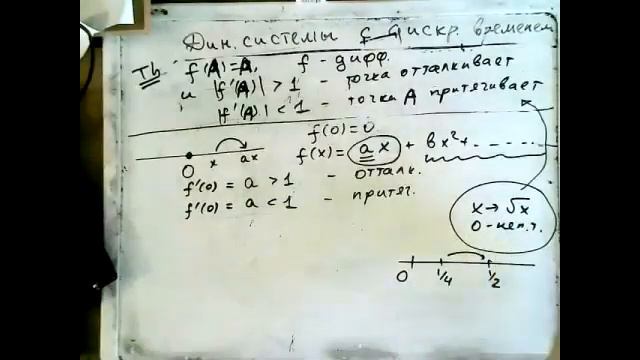 Дин. системы с дискр. временем
Ть f(A)=A, f - дифф.
и |f'(A)| > 1 - точка отталкивает
|f'(A)| < 1 - точка A притягивает
f(0)=0
f(x) = ax + bx² + - - - - -
0 x ax
f'(0) = a > 1 - отталк.
f'(0) = a < 1 - притяг.
x → √x
0 - неп. т.
0 1/4 1/2